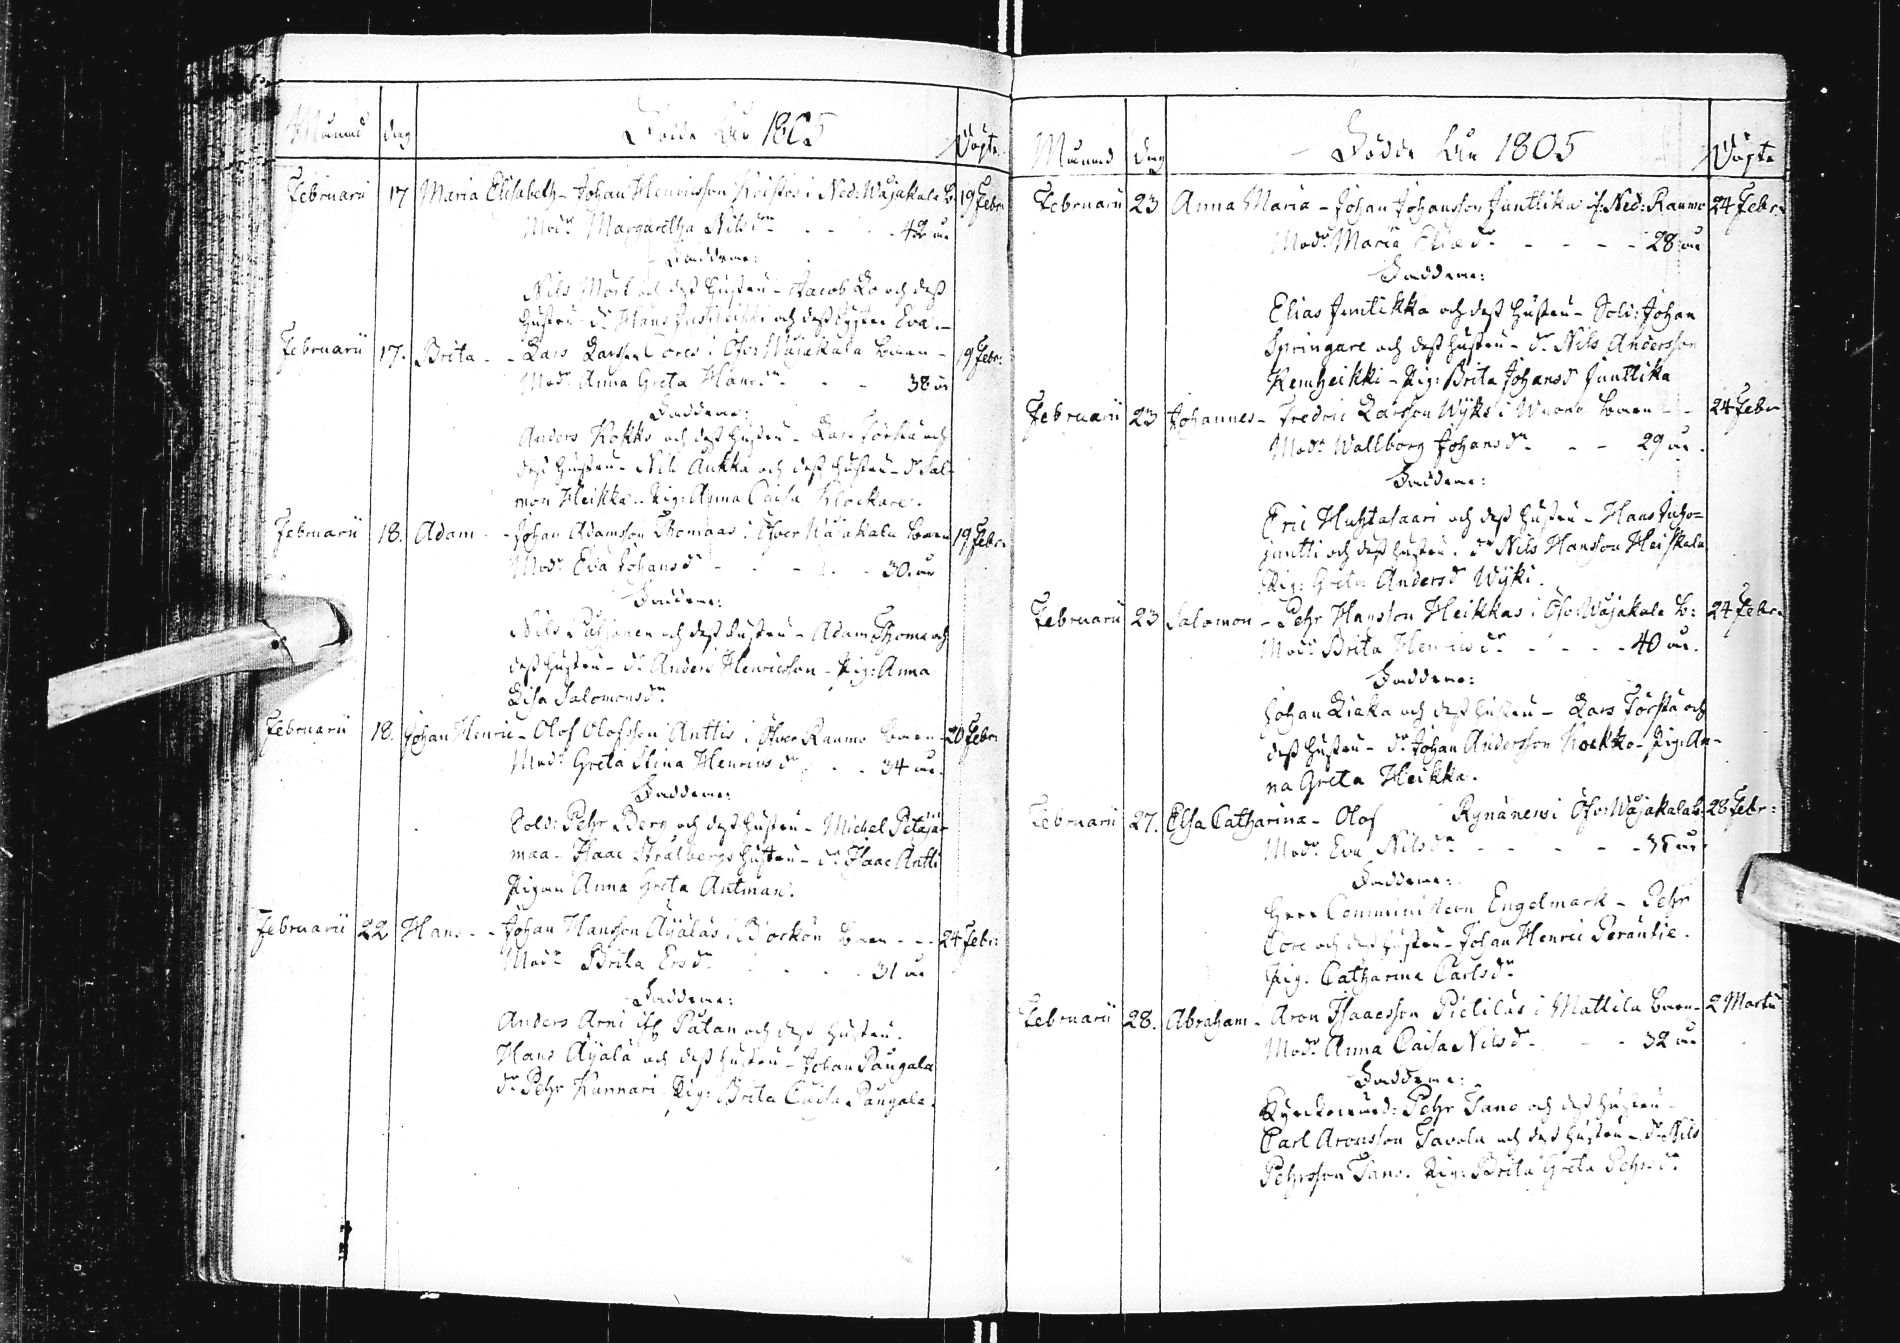 Månad dag Födde År 1805 Döpte
Februarii 17 Maria Elisabeth - Johan Henricsson i Ned: Wäjakala B. 19 Febr.
Mod:r Margaretha Nilsd:r - - - 42 år
Faddrar:
Nils och dess hustru - Jacob Lo och dess
hustru - dr. Hans och dess syster Eva. -
Februarii 17. Brita - - Lars Larsson Cores i Öfver Wäjakala barn - 19 Febr:
Mod:r Anna Greta Hansd:r - - 38 år
Faddrar:
Anders Kokko och dess hustru - Lars Förstä och
dess hustru - Nils Aukka och dess hustru - dr. Sal-
mon Heikka - Pig: Anna Caisa Klockare.
Februarii 18. Adam - - Johan Adamsson Thomaas i Öfver Wäjakala barn 19 Febr.
Mod:r Eva Johansd:r - - - - 30. år
Faddrar:
Nils och dess hustru - Adam Thoma och
dess hustru - dr. Anders Henricsson - Pig: Anna
Lisa Salomonsd:r
Februarii 18. Johan Henric - Olof Olofsson Anttis i Öfver Raumo barn - 20 Febr.
Mod:r Greta Stina Henricsd:r - - 34 år.
Faddrar:
Sold: Pehr Berg och dess hustru - Michel Petäjä-
maa - Isaac Strålbergs hustru - dr. Isaac Antti
Pigan Anna Greta Antman.
Februarii 22 Hans - - Johan Hansson Äijälas i Björkön barn - - 24 Febr:
Mod:r Brita Ersd:r - - - 31 år
Faddrar:
Anders Arni Palan och dess hustru.
Hans Äijälä och dess hustru - Johan Paugala
dr. Pehr Kannari. Pig: Brita Caisa Paugala.
Månad Dag Födde År 1805 Döpte
Februarii 23 Anna Maria - Johan Johansson Junttika i Ned: Raumo 24 Febr.
Mod:r Maria - - - - 28 år
Faddrar:
Elias Junttikka och dess hustru - Sold: Johan
Springare och dess hustru - dr. Nils Andersson
Kemheikki - Pig: Brita Johansd: Junttika
Februarii 23 Johannes - Fredric Larsson Wyks i Wuono barn - - 24 Febr
Mod:r Wallborg Johansd:r - - 29 år.
Faddrar:
Eric Huhtasaari och dess hustru - Hans Juho-
juntti och dess hustru. dr. Nils Hansson Heiskala
Pig: Greta Andersd: Wyki.
Februarii 23 Salomon - Pehr Hansson Heikkas i Öfv: Wäjakala b: 24 Febr.
Mod:r Brita Henricsd:r - - - - 40 år.
Faddrar:
Johan Liaka och dess hustru - Lars Förstä och
dess hustru - dr. Johan Andersson Kockko - Pig: An-
na Greta Heikka.
Februarii 27. Elsa Catharina - Olof Rynänens i Öfv: Wäjakala b: 28 Febr:
Mod:r Eva Nilsd:r - - - - - år
Faddrar:
Herr Comministern Engelmark - Pehr
Core och dess hustru - Johan Henric Peräntie.
Pig: Catharina Carlsd:r
Februarii 28. Abraham - Aron Isaacsson Pietilas i Mattila barn - 2 Martii
Mod:r Anna Caisa Nilsd:r - - - 32 år
Faddrar:
Kyrkovärd: Pehr Tano och dess hustru -
Carl Aronsson Tavola och dess hustru - dr. Nils
Pehrsson Tano. Pig: Brita Greta Pehrsd:r